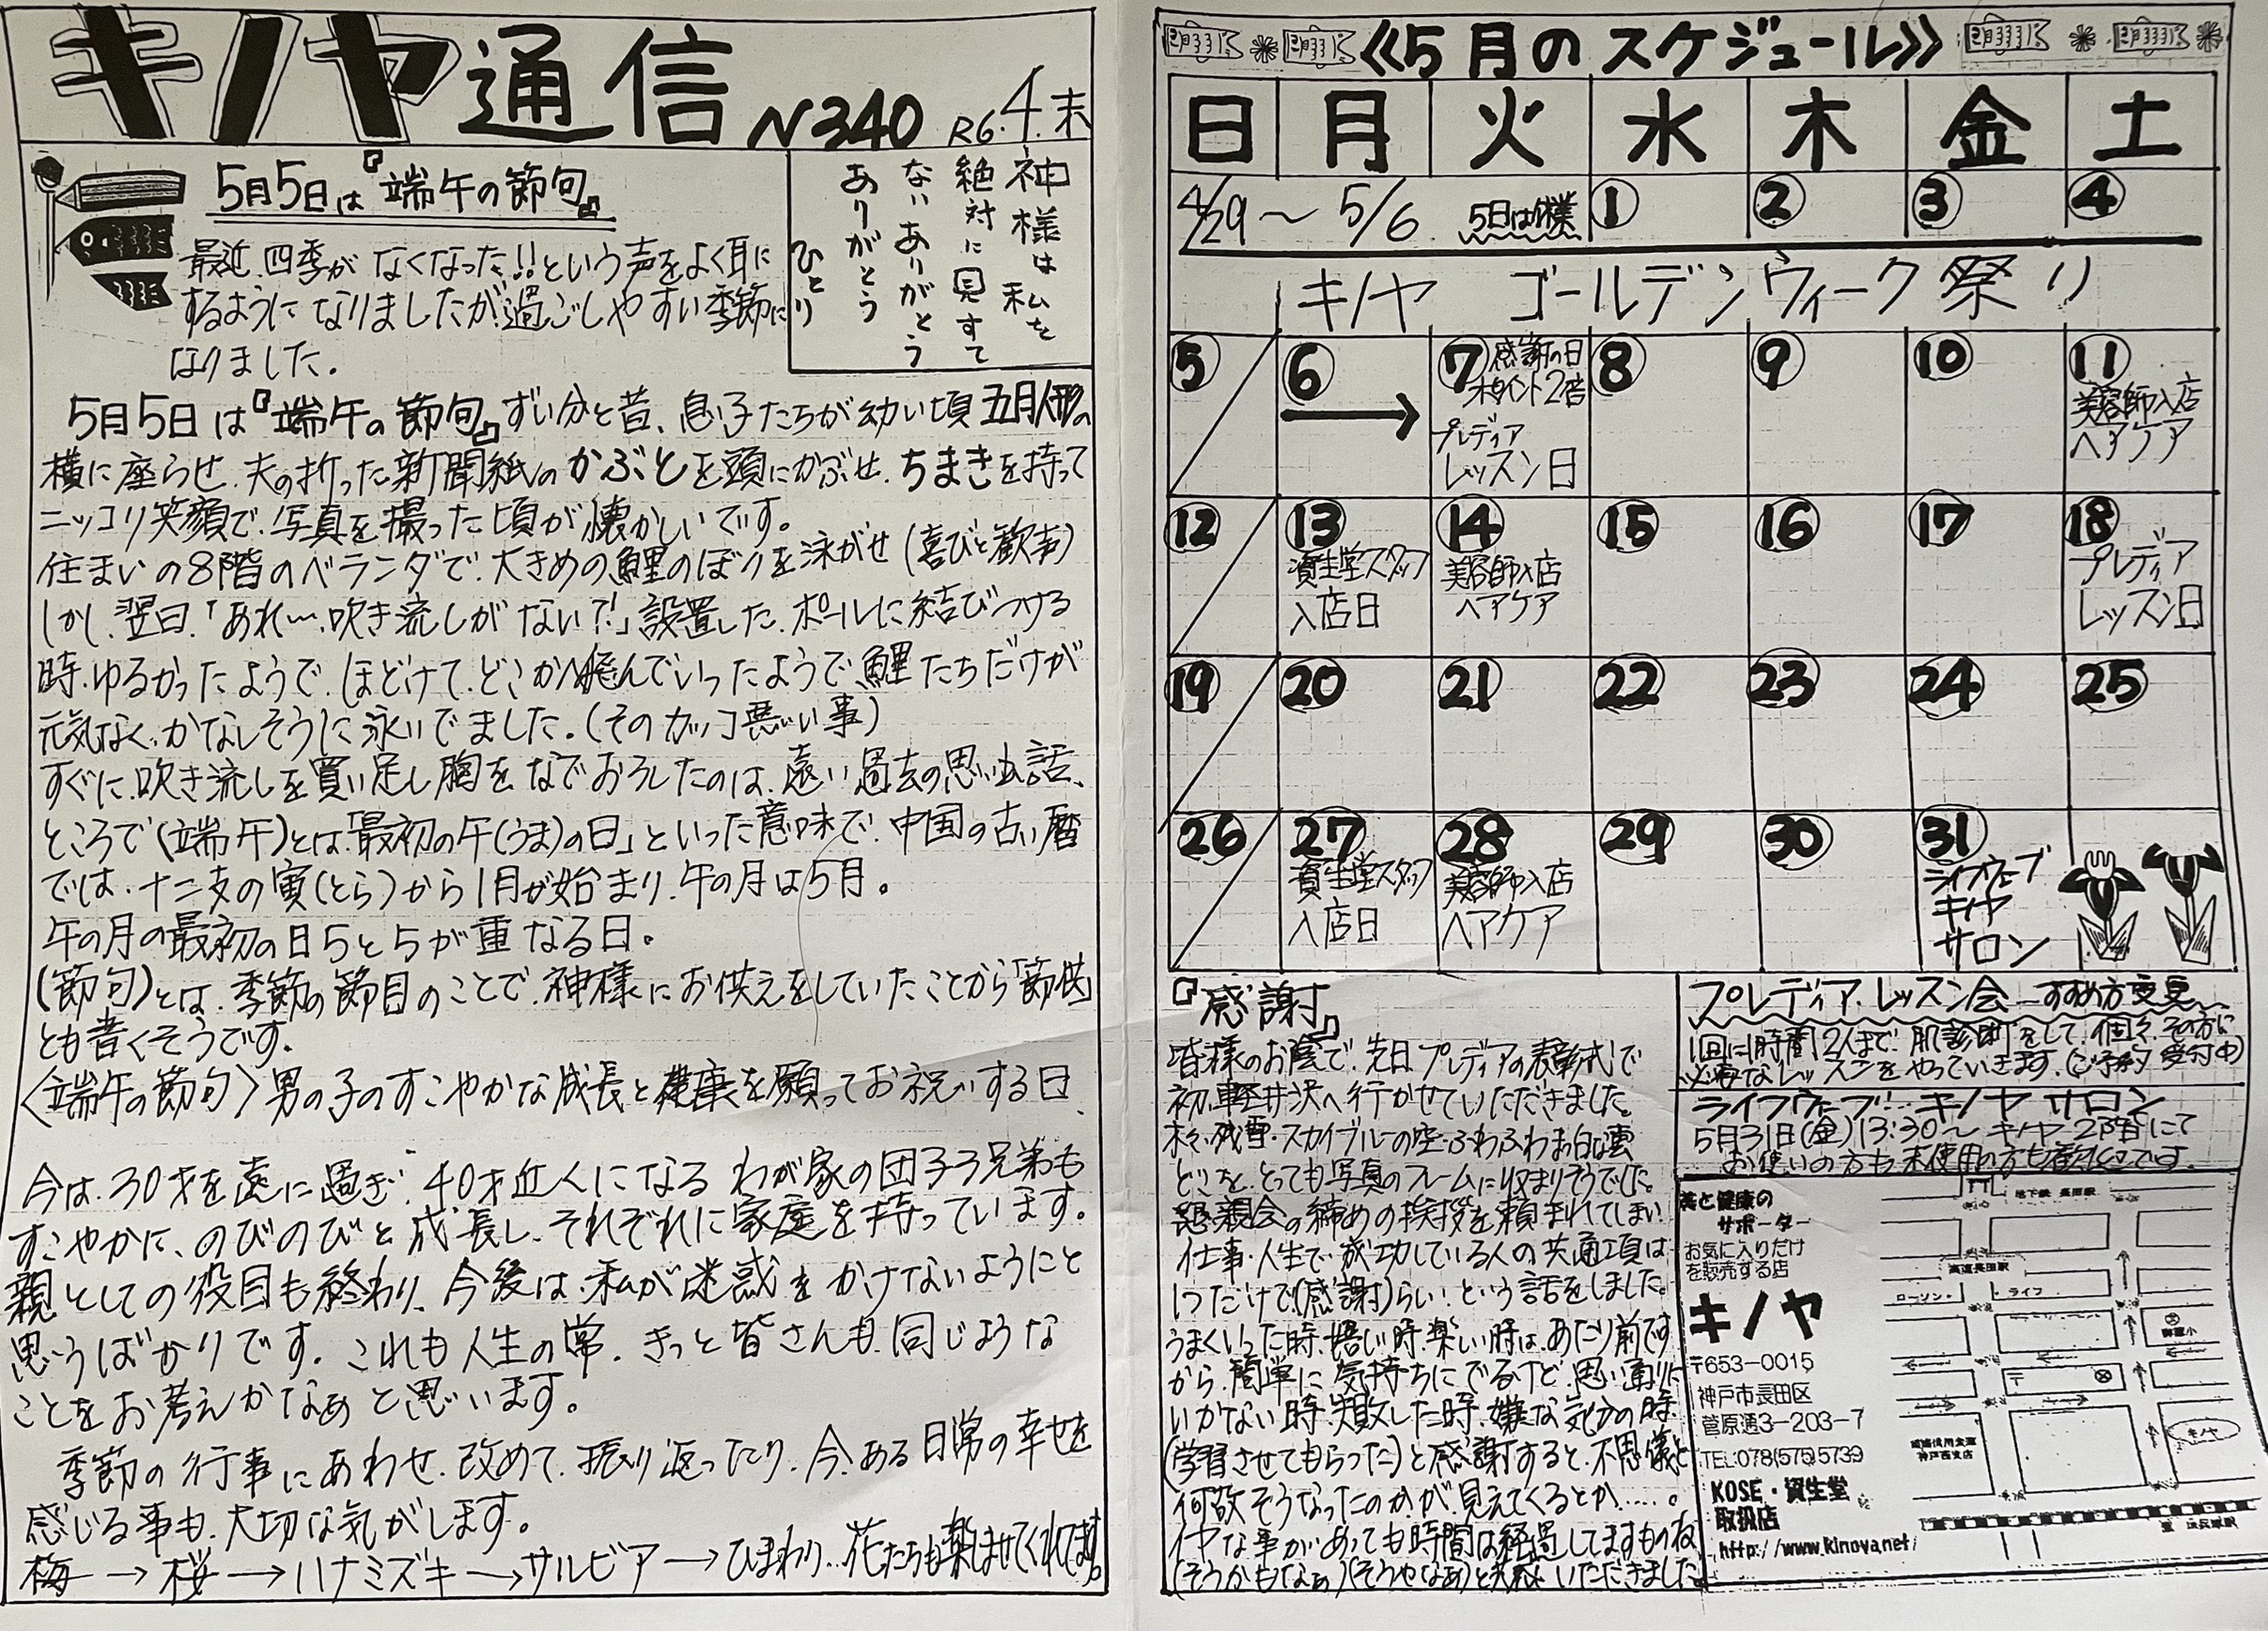 キノヤ通信 N340 R6.4.末
神様は私を
絶対に見すて
ないありがとう
ありがとう
ひとり
5月5日は『端午の節句』
最近、四季がなくなった!!という声をよく耳に
するようになりましたが、過ごしやすい季節に
なりました。
5月5日は『端午の節句』ずい分と昔、息子たちが幼い頃五月人形の
横に座らせ、夫の折った新聞紙のかぶとを頭にかぶせ、ちまきを持って
ニッコリ笑顔で、写真を撮った頃が懐かしいです。
住まいの8階のベランダで、大きめの鯉のぼりを泳がせ(喜びと歓声)
しかし、翌日、「あれ〜、吹き流しがない?!」設置した、ポールに結びつける
時、ゆるかったようで、ほどけて、どこかへ飛んでいったようで、鯉たちだけが
元気なく、かなしそうに泳いでました。(そのカッコ悪い事)
すぐに、吹き流しを買い足し胸をなでおろしたのは、遠い過去の思い出話、
ところで(端午)とは、「最初の午(うま)の日」といった意味で、中国の古い暦
では、十二支の寅(とら)から1月が始まり、午の月は5月。
午の月の最初の日5と5が重なる日。
(節句)とは、季節の節目のことで、神様にお供えをしていたことから「節供」
とも書くそうです。
〈端午の節句〉男の子のすこやかな成長と健康を願ってお祝いする日、
今は、30才を遠に過ぎ、40才近くになるわが家の団子3兄弟も
すこやかに、のびのびと成長し、それぞれに家庭を持っています。
親としての役目も終わり、今後は、私が迷惑をかけないようにと
思うばかりです。これも人生の常、きっと皆さんも同じような
ことをお考えかなぁと思います。
季節の行事にあわせ、改めて、振り返ったり、今、ある日常の幸せを
感じる事も、大切な気がします。
梅→桜→ハナミズキ→サルビア→ひまわり…花たちも楽しませてくれてます。
《5月のスケジュール》
日 月 火 水 木 金 土
4/29〜5/6 5日は休業 ① ② ③ ④
キノヤ ゴールデンウィーク祭り
5 6 → 7 感謝の日 ポイント2倍 プレディア レッスン日 8 9 10 11 美容師入店 ヘアケア
12 13 資生堂スタッフ 入店日 14 美容師入店 ヘアケア 15 16 17 18 プレディア レッスン日
19 20 21 22 23 24 25
26 27 資生堂スタッフ 入店日 28 美容師入店 ヘアケア 29 30 31 ライフウェーブ キノヤ サロン
『感謝』
皆様のお陰で、先日プレディアの表彰式で
初、軽井沢へ行かせていただきました。
木々、残雪・スカイブルーの空・ふわふわお白な雲
どこをとっても写真のフレームに収まりそうでした。
懇親会の締めの挨拶を頼まれてしまい
仕事・人生で、成功している人の共通項は
1つだけで(感謝)らしい!という話をしました。
うまくいった時、嬉しい時、楽しい時は、あたり前です
から、簡単に気持ちにでるけど、思い通りに
いかない時、失敗した時、嫌な気分の時
(学習させてもらった)と感謝すると、不思儀と
何故そうなったのか、が、見えてくるとか……。
イヤな事があっても時間は経過してますものね
(そうかもなぁ)(そうやなぁ)と共感いただきました
プレディア・レッスン会 すすめ方変更
1回に1時間2人まで、肌診断をして、個々、その方に
必要なレッスンをやっていきます。(ご予約受付中)
ライフウェーブ キノヤ サロン
5月31日(金)13:30〜 キノヤ2階にて
お使いの方も未使用の方も歓迎です。
美と健康の
サポーター
お気に入りだけ
を販売する店
キノヤ
〒653-0015
神戸市長田区
菅原通3-203-7
TEL:078(575)5739
KOSE・資生堂
取扱店
http://www.kinoya.net/
地下鉄 長田駅
高速長田駅
ローソン
ライフ
〒
神戸西支店
キノヤ